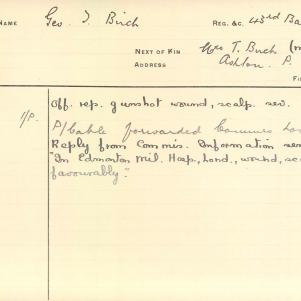 NAME Geo. T. Birch REG. &C. 43rd Ba
NEXT OF KIN Mrs T. Birch (m
ADDRESS Ashton. P.
FI
Off. rep. gunshot wound, scalp. sev.
I/P. P/Cable forwarded Commis Lon
Reply from Commis. Information sen
"In Edmonton Mil. Hosp., Lond., wound, sc
favourably."